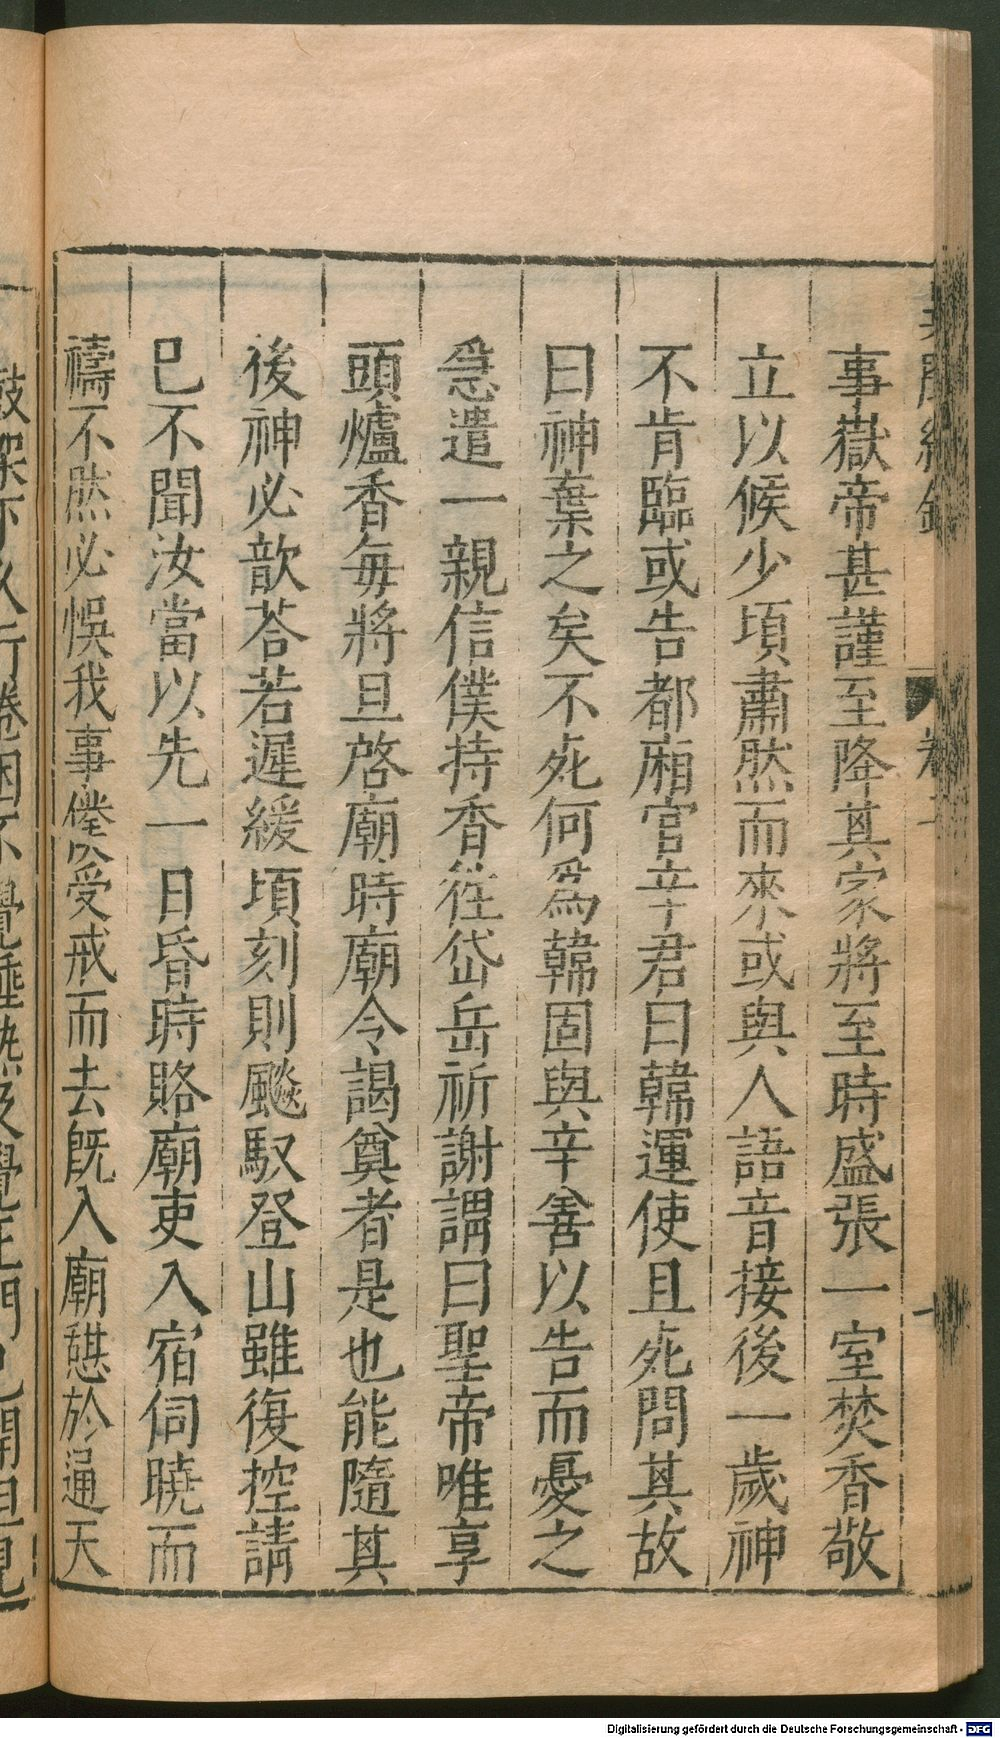 事嶽帝甚謹至降其家將至時盛張一室焚香敬
立以候少頃肅然而來或與人語音接後一歲神
不肯臨或告都廂官辛君曰韓運使且死問其故
曰神棄之矣不死何為韓固與辛善以告而憂之
急遣一親信僕持香往岱岳祈謝謂曰聖帝唯享
頭爐香每將旦啓廟時廟令謁奠者是也能隨其
後神必歆荅若遲緩頃刻則飈馭登山雖復控請
已不聞汝當以先一日昏時賂廟吏入宿伺曉而
禱不然必悞我事僕受戒而去既入廟憇於通天
Digitalisierung gefördert durch die Deutsche Forschungsgemeinschaft - DFG